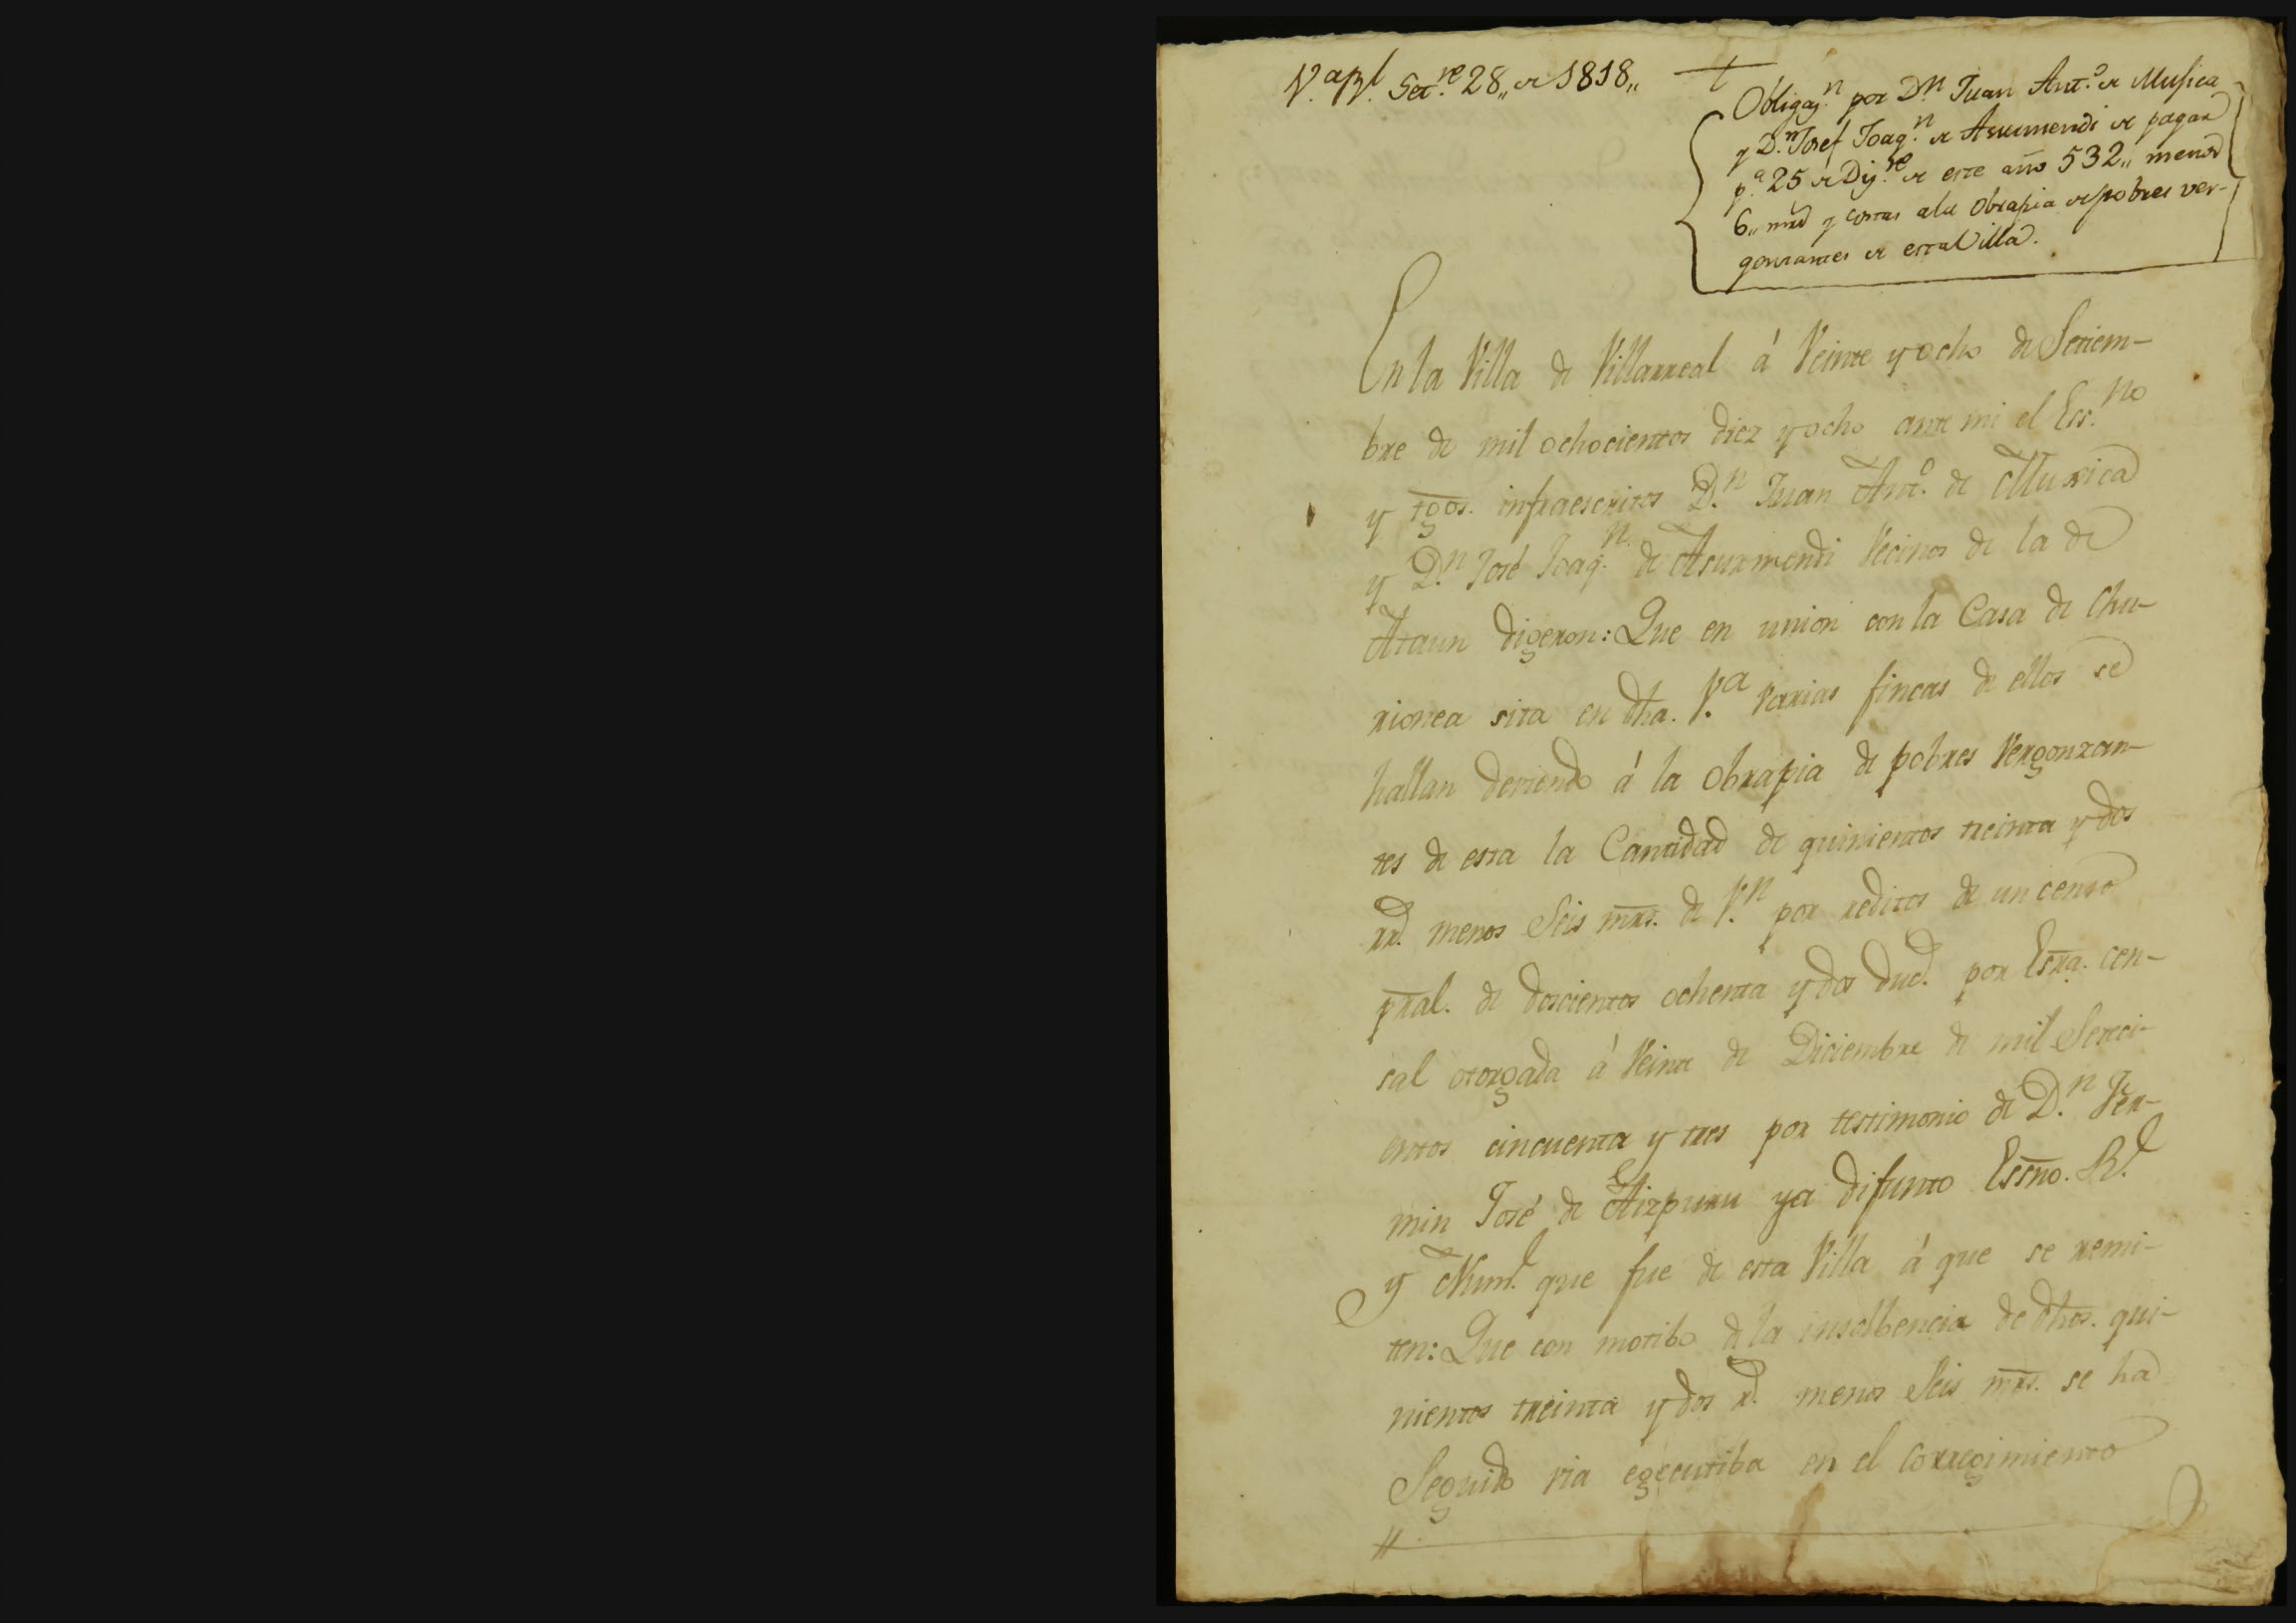 V.ª R.l Set.re 28,, de 1818,,
Obligaz.n por D.n Juan Ant.o de Musica
y D.n Josef Joaq.n de Asurmendi de pagar
p.a 25 de Diz.re de este año 532,, menos
6,, mrs y costas ala Obrapia de pobres ver-
gonzantes de esta Villa.
En la Villa de Villarreal á Veinte y ocho de Setiem-
bre de mil ochocientos diez y ocho ante mi el Ess.no
y tgos. infraescritos D.n Juan Ant.o de Muxica
y D.n José Joaq.n de Asurmendi Vecinos de la de
Ataun digeron: Que en union con la Casa de Chu-
rionea sita en dha. V.a varias fincas de ellos se
hallan deviendo á la Obrapia de pobres Vergonzan-
tes de esta la Cantidad de quinientos treinta y dos
rr.s menos Seis mrs. de V.n por reditos de un censo
pral. de doscientos ochenta y dos duc.s por Esra. cen-
sal otorgada á Veinte de Diciembre de mil Seteci-
entos cincuenta y tres por testimonio de D.n Fer-
min José de Aizpuru ya difunto Essno. R.l
y Num.l que fue de esta Villa á que se remi-
ten: Que con motibo de la insolbencia de dhos. qui-
nientos treinta y dos r.s menos Seis mrs. se ha
Seguido via egecutiba en el Corregimiento